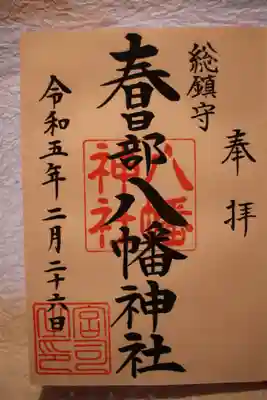 奉拝
総鎮守
春日部八幡神社
八幡
神社
令和五年二月二十六日
宮司
之印